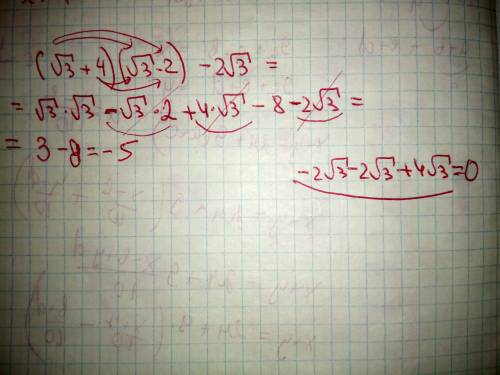 (√3 + 4)(√3 - 2) - 2√3 =
= √3 · √3 - √3 · 2 + 4 · √3 - 8 - 2√3 =
= 3 - 8 = -5
-2√3 - 2√3 + 4√3 = 0